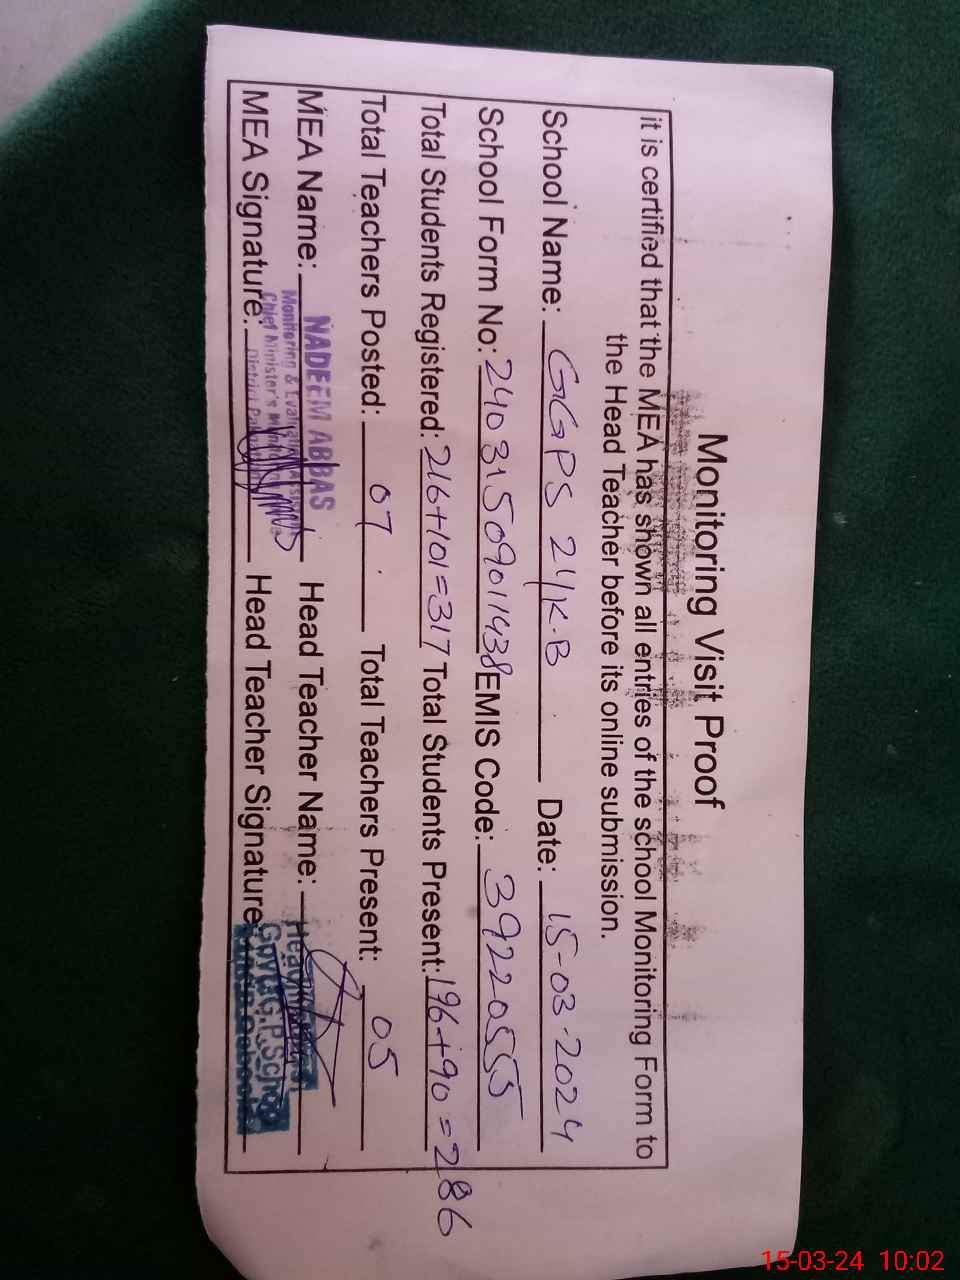 Monitoring Visit Proof
it is certified that the MEA has shown all entries of the school Monitoring Form to
the Head Teacher before its online submission.
School Name: GGPS 24K.B Date: 15-03-2024
School Form No: 24031509011438 EMIS Code: 39220555
Total Students Registered: 216+101=317 Total Students Present: 196+90=286
Total Teachers Posted: 07 Total Teachers Present: 05
MEA Name: NADEEM ABBAS Head Teacher Name: Headmistress
Monitoring & Evaluation
Chief Minister's
District Pakpattan
MEA Signature: Head Teacher Signature
Govt. G.P. School
15-03-24 10:02